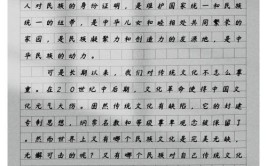 人对民族的身份证明，是维护国家统一和民族
统一的纽带，是中华儿女和睦相处共同繁荣的
家园，是民族凝聚力和创造力的发源地，是中
华民族的动力。
可是长期以来，我们对传统文化不怎么尊
重。在20世纪中后期，文化革命使得中国文
化元气大伤。固然传统文化有缺陷，它的封建
专制思想，纲常名教和等级尊卑观念应被剔除。
然而世界上又有哪个民族文化是完美无缺，
无懈可击的呢？又有哪个民族对自己传统